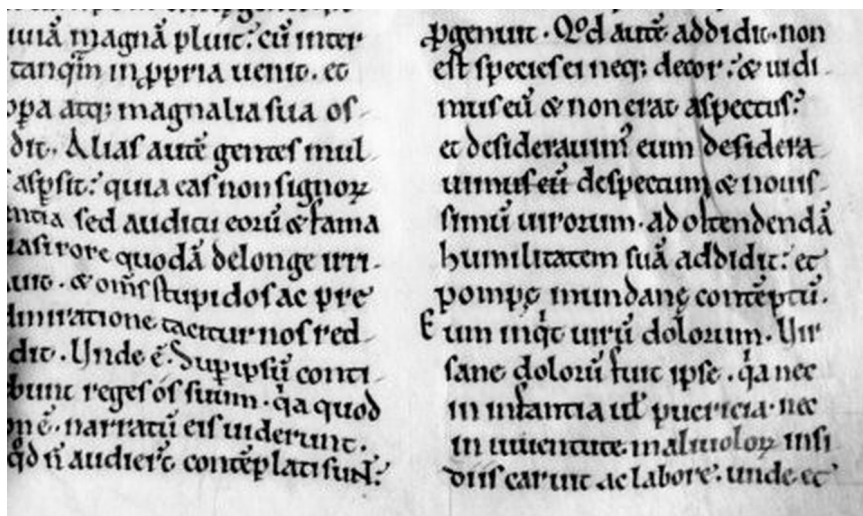 uiā magnā pluit: cū inter
tanq̄m in ꝓpria uenit. et
oꝑa atq; magnalia sua os-
dit. Alias autē gentes mul-
aspsit: quia eas non signoꝝ
entia sed auditu eorū & fama
asi rore quodā delonge irri-
uit. & om̄s stupidos ac pre
dmiratione taciturnos red-
dit. Unde ē. Suꝑ ipsū conti-
bunt reges os suum. q̓a quod
on ē. narratū eis uiderunt.
q̓d n̄ audier̄t contēplati sunt.
ꝓgenuit. Qd̓ autē addidit. non
est species ei neq; decor: & uidi-
mus eū & non erat aspectus:
et desiderauim᾽ eum desidera
uimus eū despectum & nouis-
simū uirorum. ad ostendendā
humilitatem suā addidit: et
pompę mundanę contēptū.
Eum inq̓t uirū dolorum. Uir
sane dolorū fuit ipse. q̓a nec
in infantia ul̓ puericia. nec
in iuuentute. maliuoloꝝ insi
diis caruit ac labore. unde et